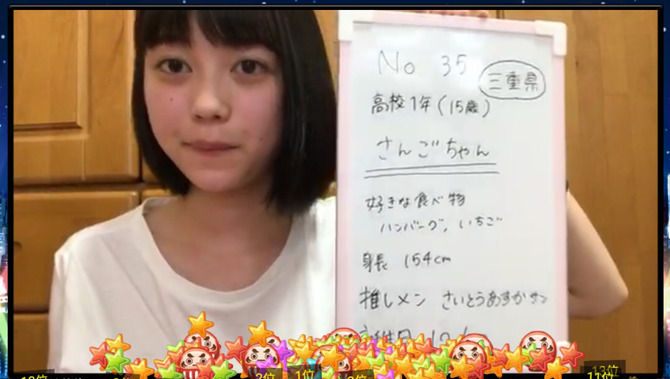 No 35
三重県
高校1年(15歳)
さんごちゃん
好きな食べ物
ハンバーグ, いちご
身長 154cm
推しメン さいとうあすかサン
3位
1位
11位